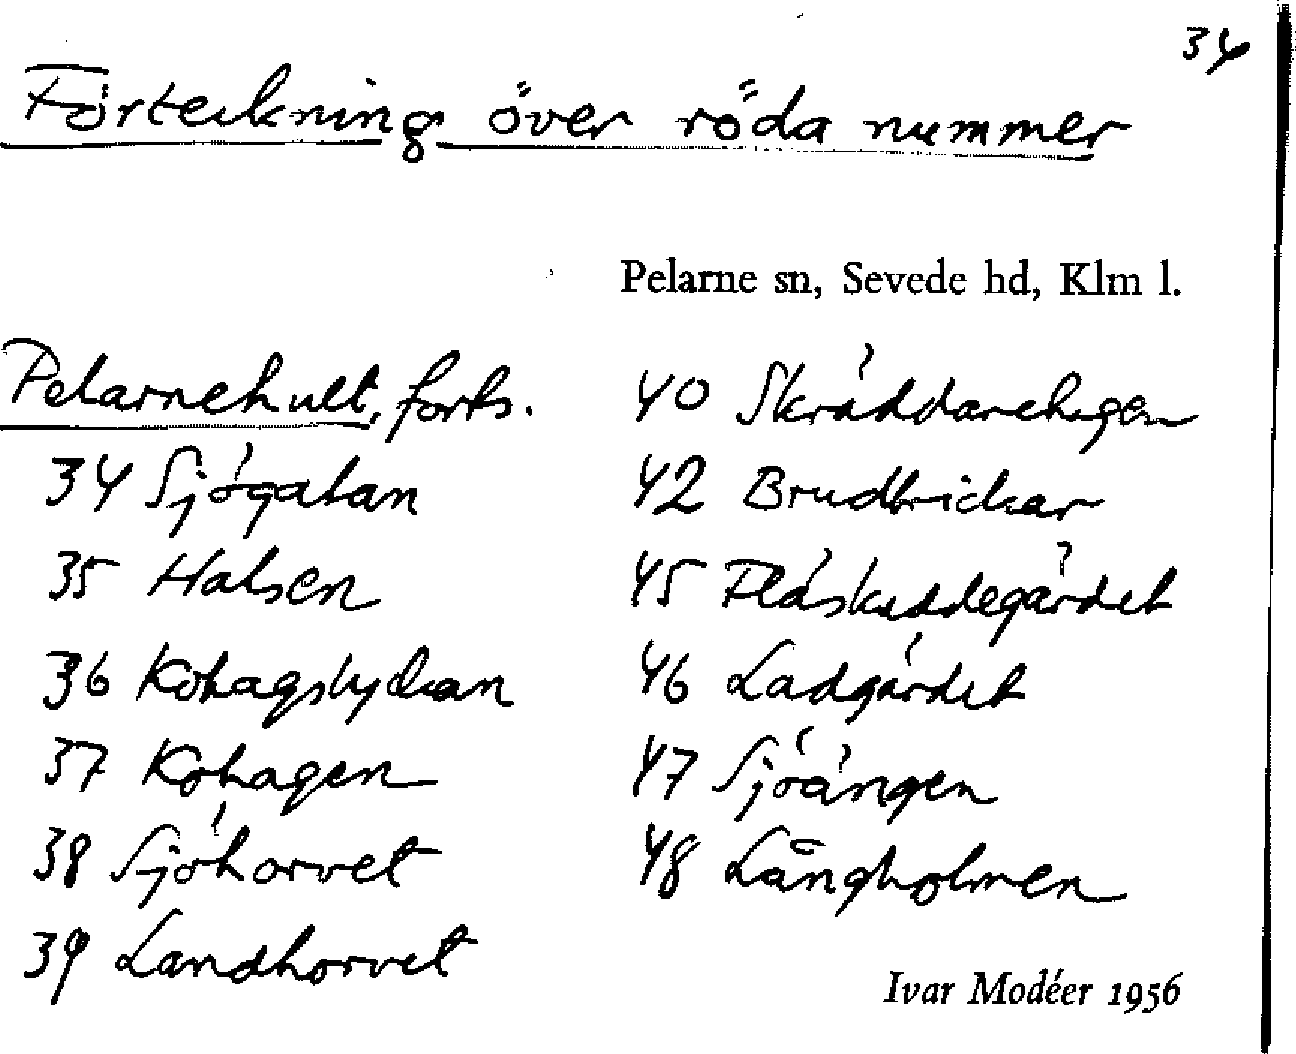 34
Förteckning över röda nummer
Pelarne sn, Sevede hd, Klm l.
Pelarnehult, forts.
34 Sjögatan
35 Halsen
36 Kohagslyckan
37 Kohagen
38 Sjöhorvet
39 Landhorvet
40 Skräddarehagen
42 Brudbrickar
45 Fläskaddegärdet
46 Ladgärdet
47 Sjöängen
48 Långholmen
Ivar Modéer 1956